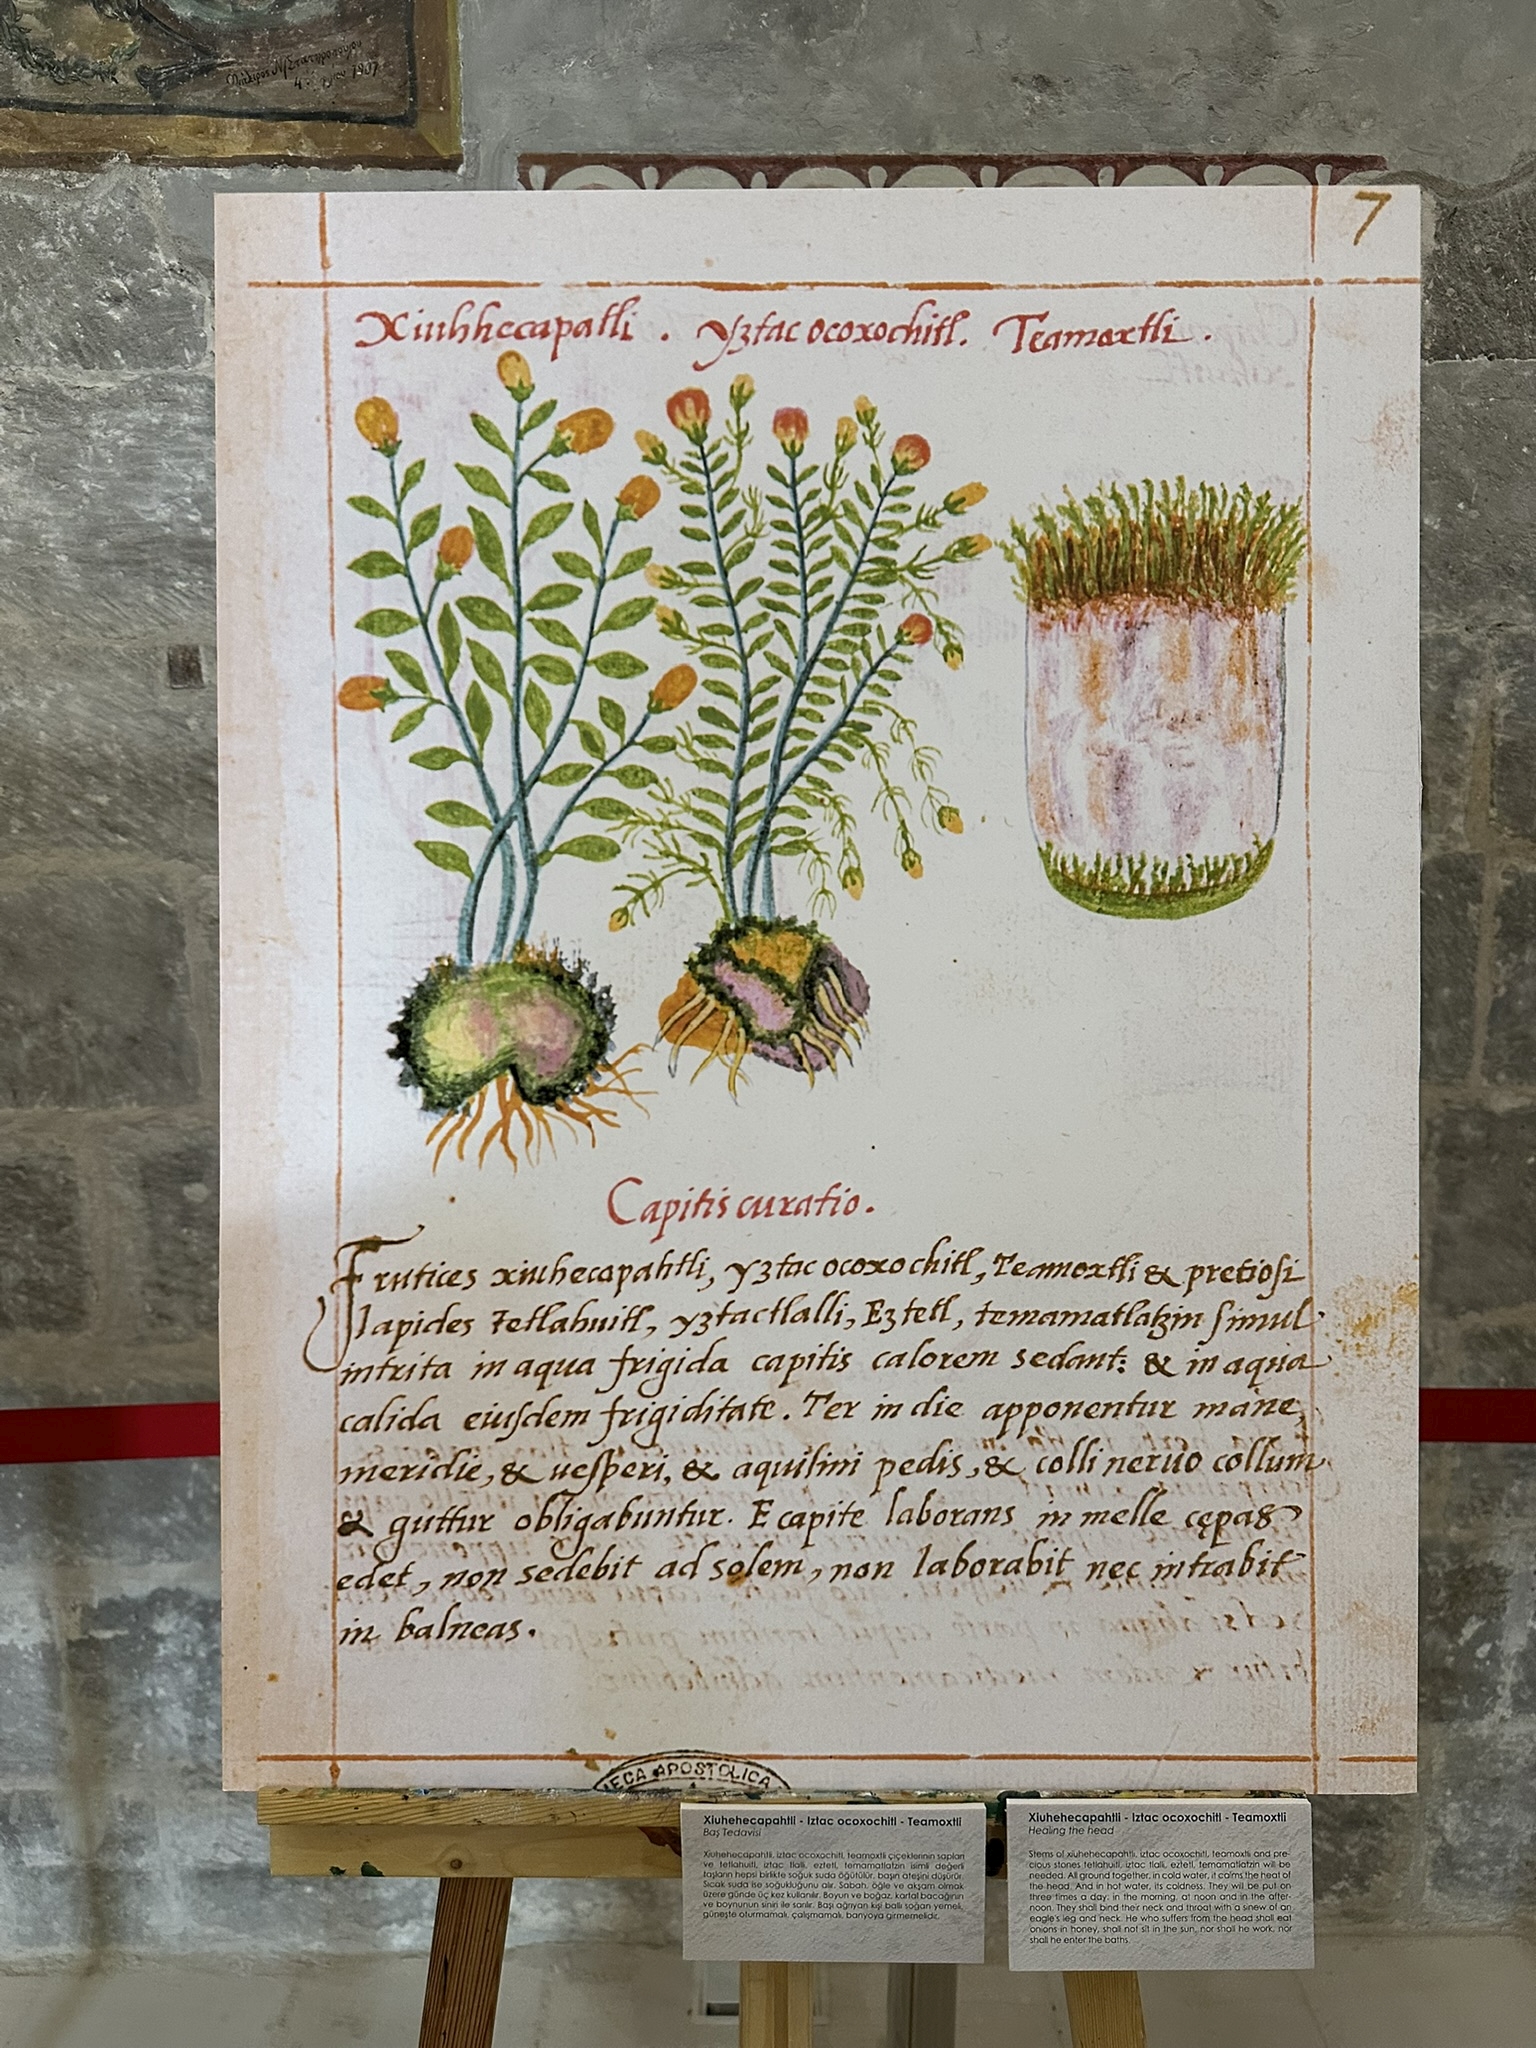 4 1907
7
Xiuhhecapatli . Yztac ocoxochitl. Teamoxtli .
Capitis curatio.
Frutices xiuhecapahtli, yztac ocoxochitl, Teamoxtli & pretiosi
lapides tetlahuitl, yztactlalli, Eztetl, temamatlatzin simul
intrita in aqua frigida capitis calorem sedant: & in aqua
calida eiusdem frigiditate. Ter in die apponentur mane,
meridie, & uesperi, & aquilini pedis, & colli neruo collum
& guttur obligabuntur. E capite laborans in melle cępas
edet, non sedebit ad solem, non laborabit nec intrabit
in balneas.
ECA APOSTOLICA
Xiuhehecapahtli - Iztac ocoxochitl - Teamoxtli
Baş Tedavisi
Xiuhehecapahtli, iztac ocoxochitl, teamoxtli çiçeklerinin sapları
ve tetlahuitl, iztac tlalli, eztetl, temamatlatzin isimli değerli
taşların hepsi birlikte soğuk suda öğütülür, başın ateşini düşürür.
Sıcak suda ise soğukluğunu alır. Sabah, öğle ve akşam olmak
üzere günde üç kez kullanılır. Boyun ve boğaz, kartal bacağının
ve boynunun siniri ile sarılır. Başı ağrıyan kişi ballı soğan yemeli,
güneşte oturmamalı, çalışmamalı, banyoya girmemelidir.
Xiuhehecapahtli - Iztac ocoxochitl - Teamoxtli
Healing the head
Stems of xiuhehecapahtli, iztac ocoxochitl, teamoxtli and pre-
cious stones tetlahuitl, iztac tlalli, eztetl, temamatlatzin will be
needed. All ground together, in cold water, it calms the heat of
the head. And in hot water, its coldness. They will be put on
three times a day: in the morning, at noon and in the after-
noon. They shall bind their neck and throat with a sinew of an
eagle's leg and neck. He who suffers from the head shall eat
onions in honey, shall not sit in the sun, nor shall he work, nor
shall he enter the baths.